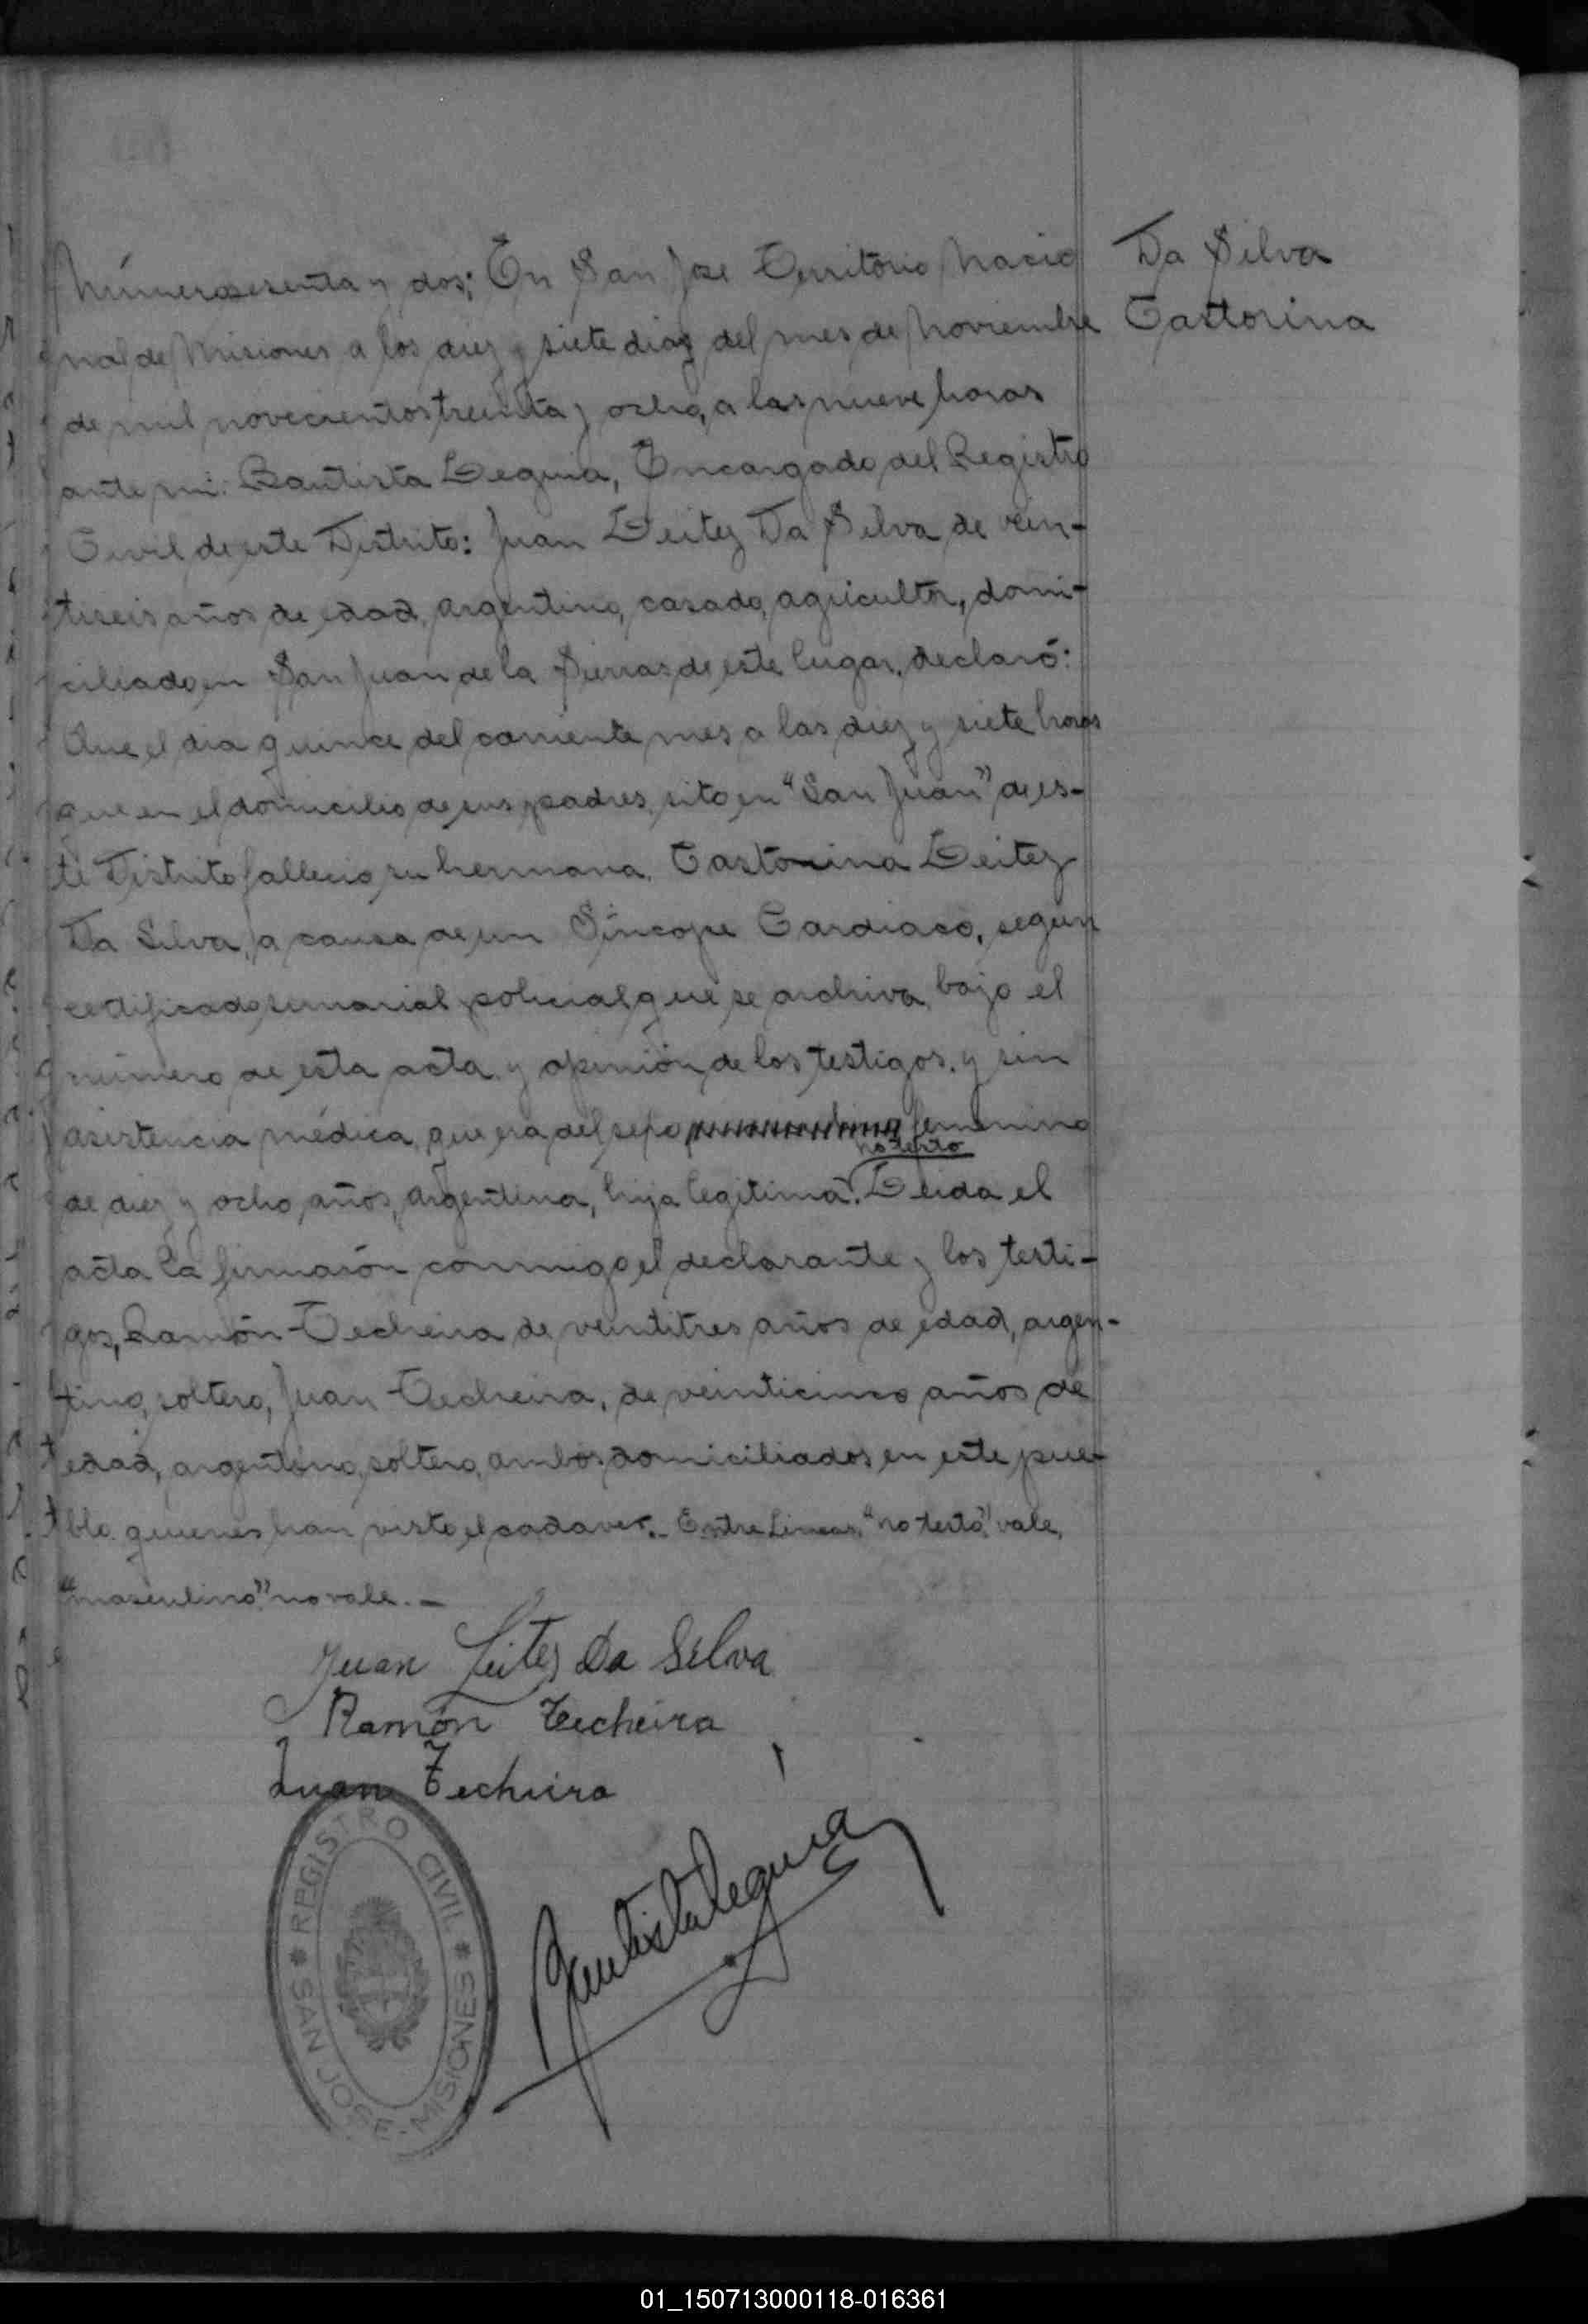 Da Silva
Castorina
Número sesenta y dos; En San Jose Territorio Nacio
nal de Misiones a los diez y siete dias del mes de Noviembre
de mil novecientos treinta y ocho, a las nueve horas
ante mi: Bautista Leguia, Encargado del Registro
Civil de este Distrito: Juan Leitez Da Silva de vein-
tiseis años de edad, argentino, casado, agricultor, domi-
ciliado en San Juan de la Sierras de este lugar, declaró:
Que el dia quince del corriente mes a las diez y siete horas
que en el domicilio de sus padres, sito en "San Juan" de es-
te Distrito fallecio su hermana, Castorina Leitez
Da Silva, a causa de un Síncope Cardiaco, segun
certificado sumarial policial que se archiva bajo el
número de esta acta y opinión de los testigos, y sin
asistencia médica, que era del sexo femenino
no testó
de diez y ocho años, argentina, hija legitima. Leida el
acta la firmarón conmigo el declarante y los testi-
gos, Ramón Techeira de veintitres años de edad, argen-
tino, soltero, Juan Techeira, de veinticinco años de
edad, argentino, soltero, ambos domiciliados en este pue-
blo quienes han visto el cadaver.- Entre Lineas, "no testó," vale,
"masculino" no vale.-
Juan Leites Da Silva
Ramón Techeira
Juan Techeira
Bautista Leguia
REGISTRO CIVIL * SAN JOSE - MISIONES *
01_150713000118-016361